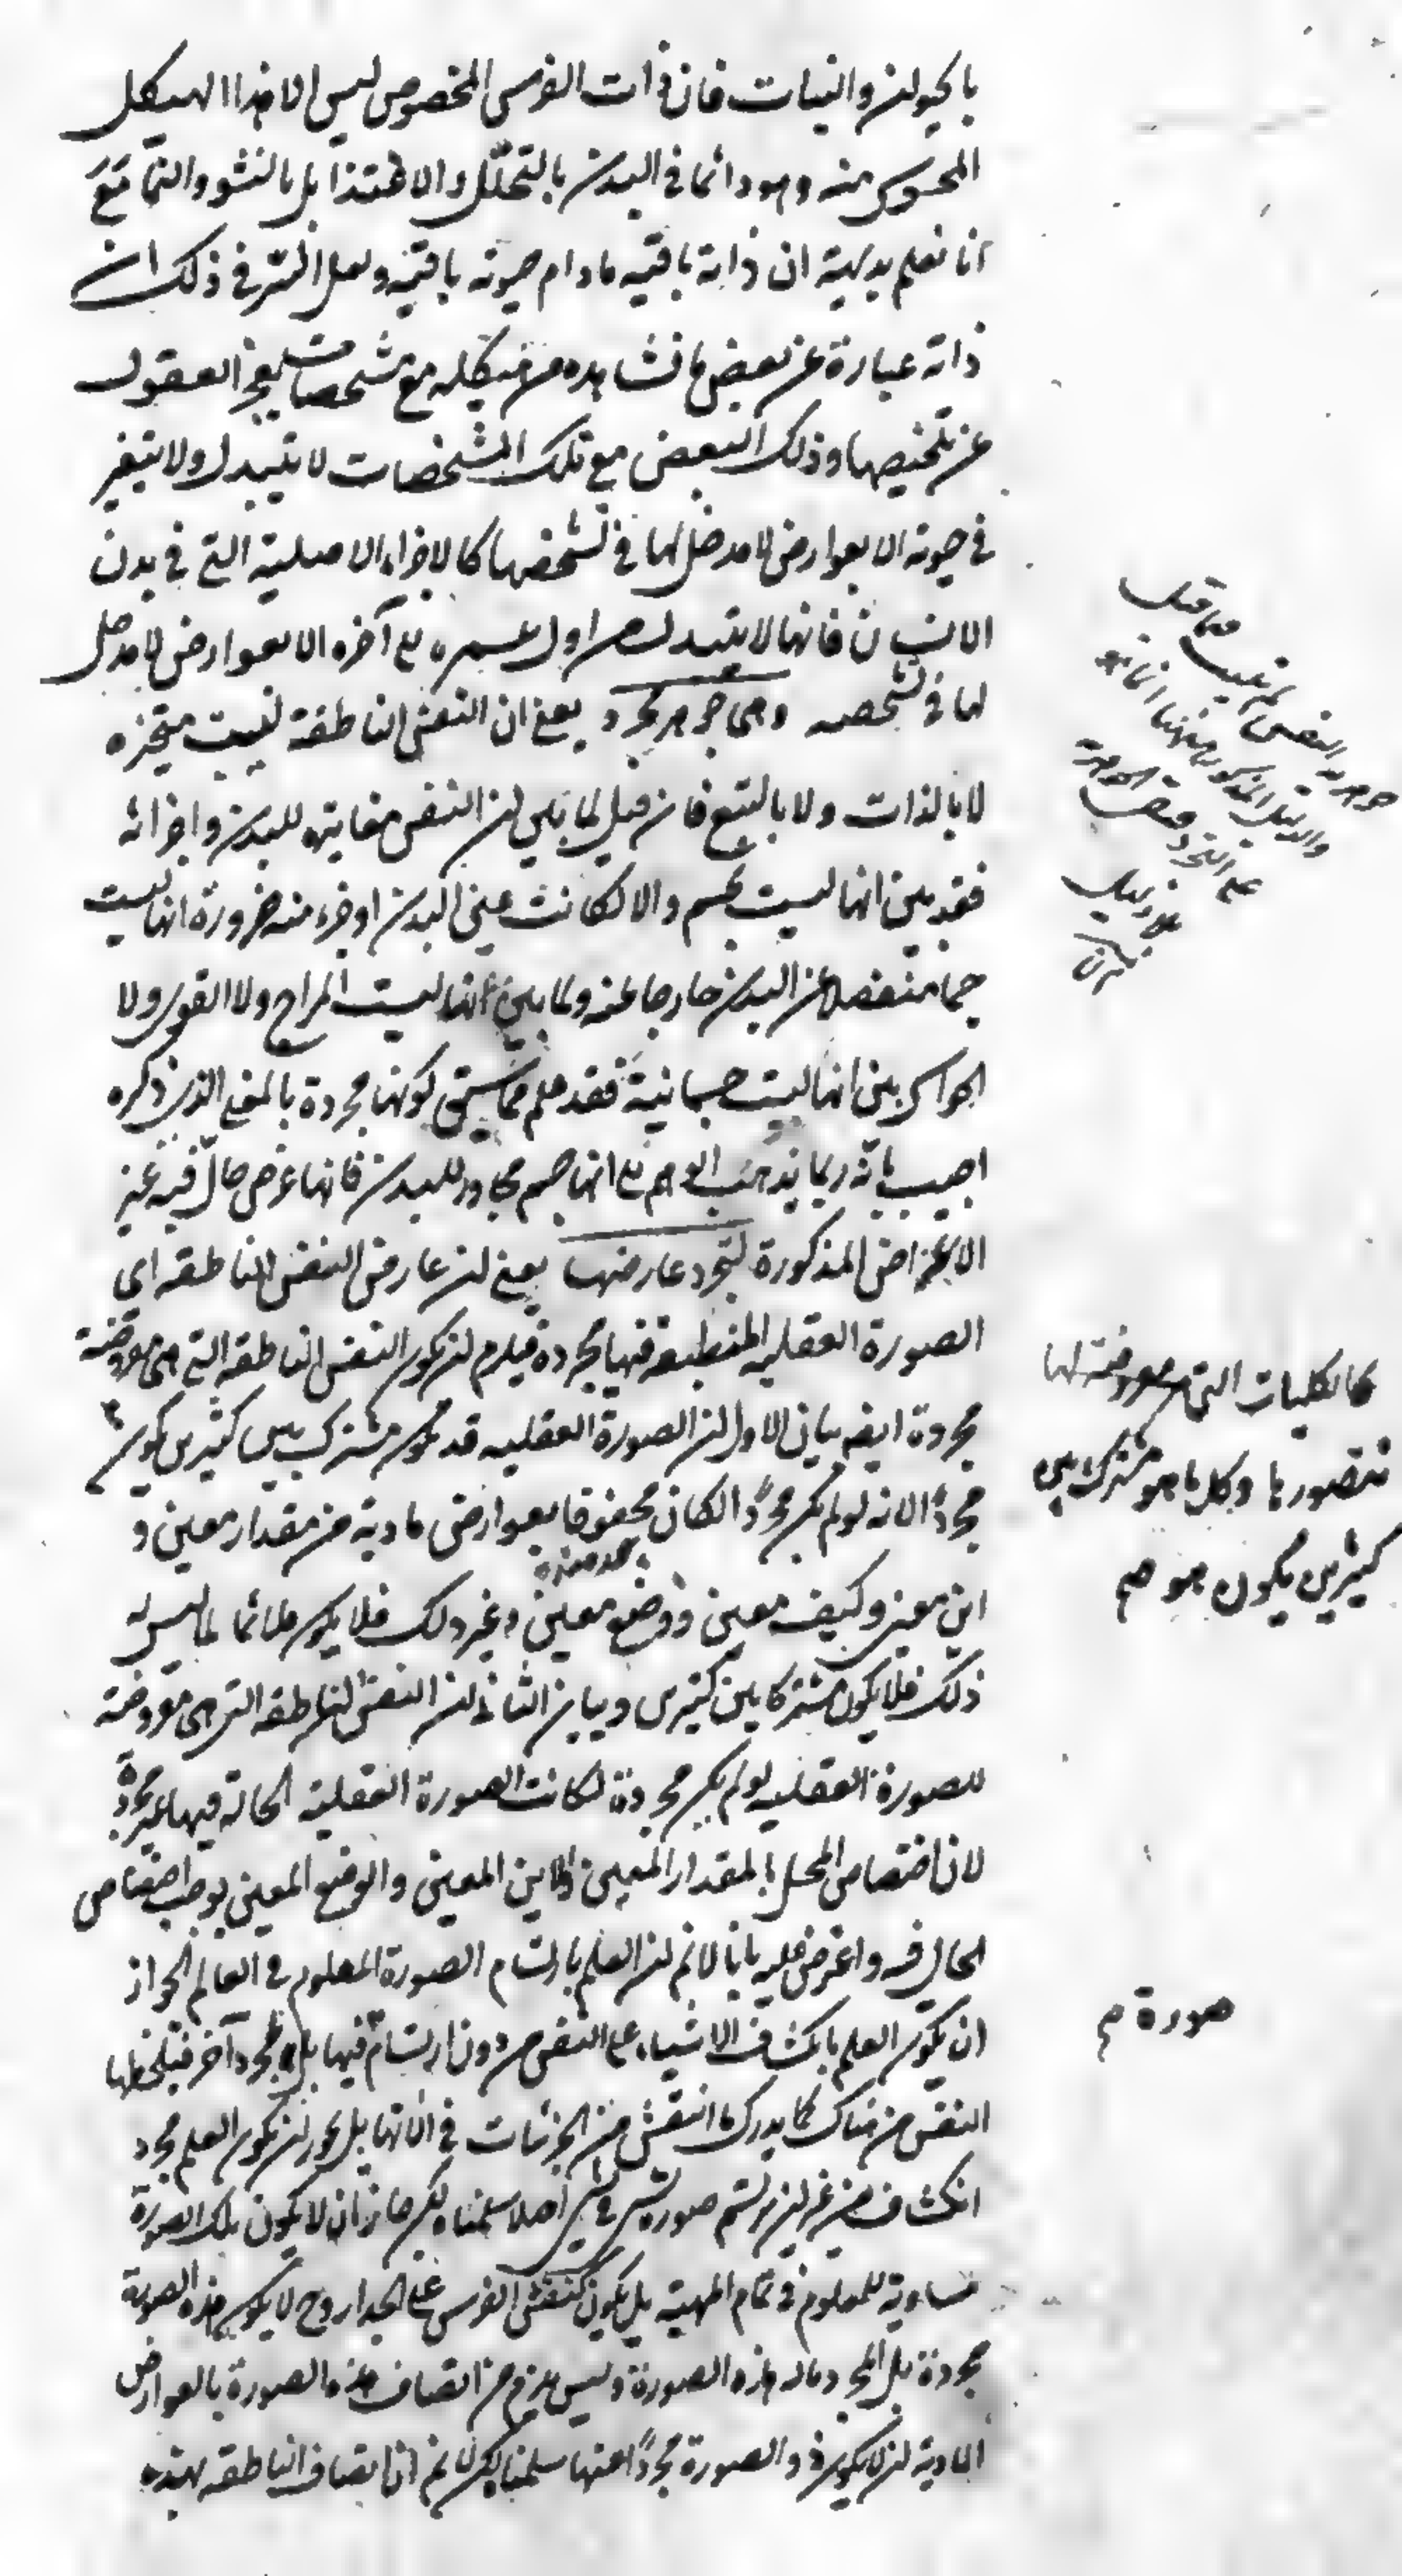 بالحيوان والنبات فان ذات الفرس المخصوص ليس الا هذا الهيكل
المحسوس منه وهو دائما في البدن بالتحلل والاغتذا بل بالنشو والنما مع
انا نعلم بديهية ان ذاته باقية مادام حيوته باقية ولعل السر في ذلك ان
ذاته عبارة عن بعض ما نشاهده من هيكله مع مشخصات يعجز العقول
عن تلخيصها وذلك البعض مع تلك المشخصات لا يتبدل ولا يتغير
في حيوته الا بعوارض لا مدخل لها في تشخصها كالاجزاء الاصلية التي في بدن
الانسان فانها لا يتبدل من اول عمره الى آخره الا بعوارض لا مدخل
لها في تشخصه وهي جوهر مجرد يعني ان النفس الناطقة ليست متحيزه
لا بالذات ولا بالتبع فان قيل لما بين ان النفس مغايرة للبدن واجزائه
فقد بين انها ليست بجسم والا لكانت عين البدن او جزء منه ضرورة انها ليست
جسما منفصلا عن البدن خارجا عنه ولما بين انها ليست المزاج ولا القوى ولا
الحواس بين انها ليست جسمانية فقد علم مما سبق كونها مجردة بالمعنى الذي ذكره
اجيب بانه ربما يذهب الوهم الى انها جسم مجاور للبدن فانها عرض حال فيه غير
الاعراض المذكورة لتجرد عارضها يعني ان عارض النفس الناطقه اي
الصورة العقليه المنطبعة فيها مجردة فيلزم ان يكون النفس الناطقه التي هي معروضة
مجردة ايضا بيان الاول ان الصورة العقليه قد يكون مشترك بين كثيرين يكون
مجردا لانه لو لم يكن مجردا لكان محفوفا بعوارض مادية من مقدار معين و
اين معين وكيف معين ووضع معين وغير ذلك فلا يكون ملائما لما ليس له
ذلك فلا يكون مشتركا بين كثيرين وبيان الثاني ان النفس الناطقه التي هي معروضة
للصورة العقليه لو لم يكن مجردة لكانت الصورة العقلية الحالة فيها غير مجردة
لان اختصاص المحل بالمقدار المعين والاين المعين والوضع المعين يوجب اختصاص
الحال فيه واعترض عليه بانا لا نم ان العلم بارتسام الصورة المعلوم في العالم لجواز
ان يكون العلم بانكشاف الاشياء على النفس من دون ارتسام فيها بل في مجرد آخر فيلحظها
النفس من هناك كما يدرك ما انتقش من الجزئيات في الاتها بل يجوز ان يكون العلم مجرد
انكشاف من غير ان يرتسم صورة شئ في شئ اصلا سلمناه لكن جاز ان لا يكون تلك الصورة
مساوية للمعلوم في تمام المهية بل يكون كنقش الفرس على الجدار وح لا يكون هذه الصورة
مجردة بل المجرد ماله هذه الصورة وليس يلزم من اتصاف هذه الصورة بالعوارض
المادية ان لا يكون ذو الصورة مجردا عنها سلمنا لكن لا نم ان اتصاف الناطقه بهذه
جوهرية النفس لم يثبت مما قبل
والدليل المذكور ههنا انما هو
على التجرد
كالكليات التي هي معروضة لها
نتصورها وكل ما هو مشترك بين
كثيرين يكون هو صح
صورة صح